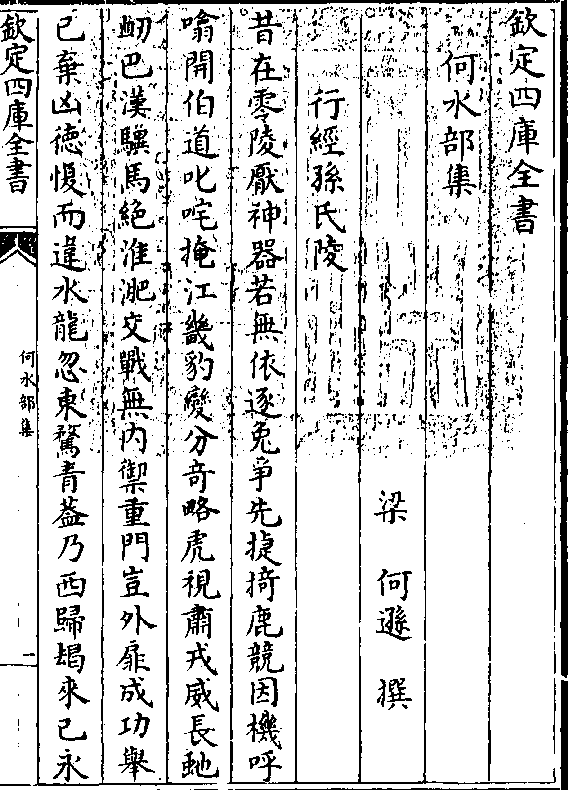 欽定四庫全書
何水部集
梁 何遜 撰
行經孫氏陵
昔在零陵厭神器若無依逐兔爭先捷掎鹿競因機呼
噏開伯道叱咤掩江畿豹變分奇略虎視肅戎威長虵
衂巴漢驥馬絕淮淝交戰無内禦重門豈外扉成功舉
已棄凶徳愎而違水龍忽東騖青葢乃西歸朅來已永
欽定四庫全書
何水部集
一